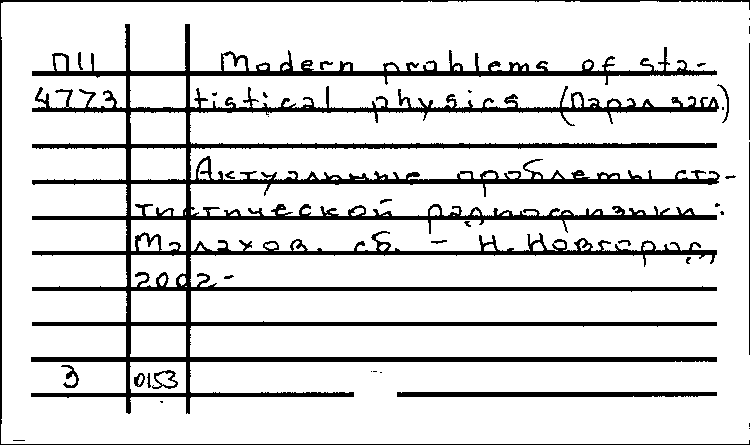 ПЦ Modern problems of sta-
4773 tistical physics (Парал. загл.)
Актуальные проблемы ста-
тистической радиофизики :
Малахов. сб. - Н. Новгород,
2002-
З 0153